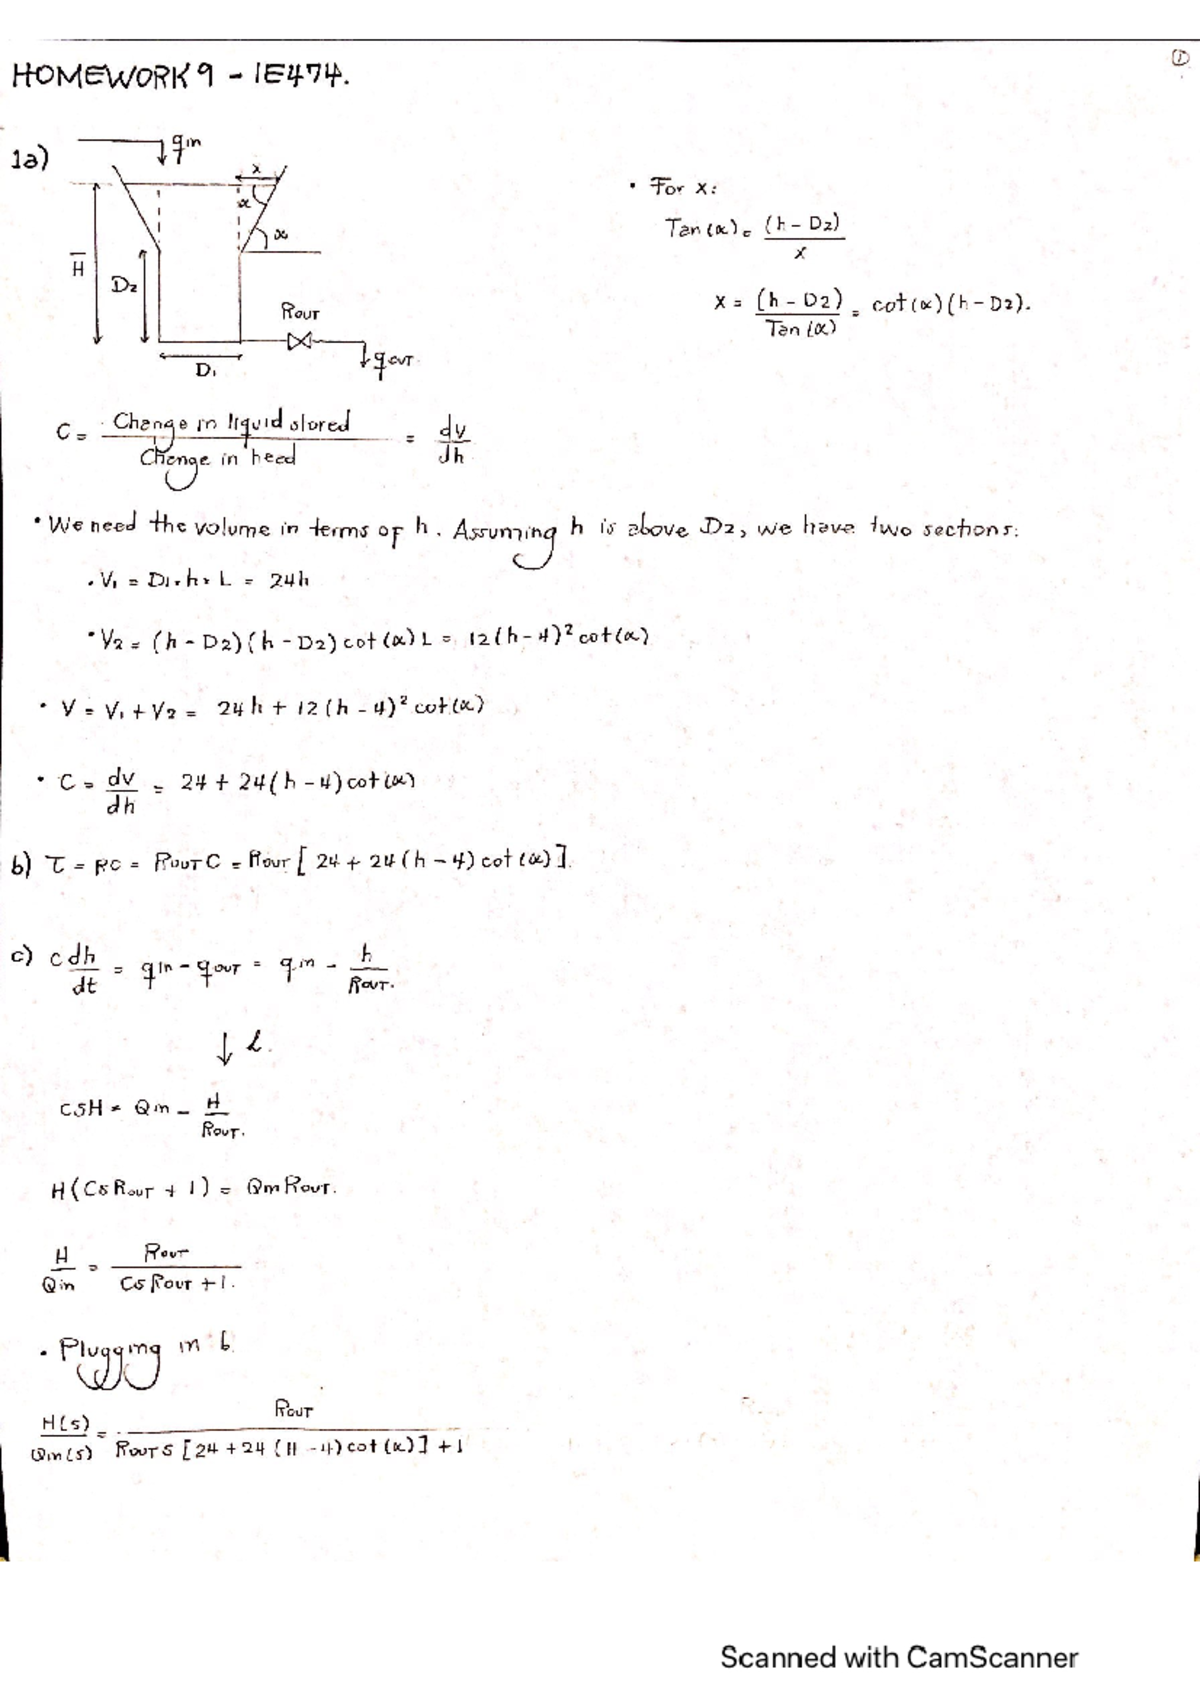 ①
HOMEWORK 9 - IE474.
1a)
qin
x
α
α
H̅
D2
Rout
qout.
D1
• For x:
Tan(α) = (h - D2)
x
x = (h - D2) = cot(α)(h - D2).
Tan(α)
C = Change in liquid stored = dv
Change in head dh
• We need the volume in terms of h. Assuming h is above D2, we have two sections:
• V1 = D1 · h · L = 24h
• V2 = (h - D2)(h - D2) cot(α) L = 12(h - 4)² cot(α)
• V = V1 + V2 = 24h + 12(h - 4)² cot(α)
• C = dv = 24 + 24(h - 4) cot(α)
dh
b) τ = RC = Rout C = Rout [24 + 24(h - 4) cot(α)].
c) c dh = qin - qout = qin - h
dt Rout.
↓ L.
CSH = Qin - H
Rout.
H(CS Rout + 1) = Qin Rout.
H = Rout
Qin CS Rout + 1.
• Plugging in b.
H(s) = Rout
Qin(s) Rout S [24 + 24(H - 4) cot(α)] + 1
Scanned with CamScanner